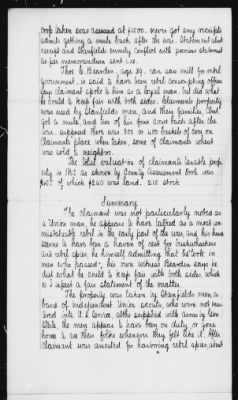 was assessed at $1500. never got any receipts
admits getting a mule back after the war. Statement about
receipt and Stanfields enmity conflict with previous statement
as per memorandum sent
Thos L. Bearden, age 59. ran saw mill for rebel
Government, is said to have been rebel conscripting officer
Says claimant spoke to him as a loyal man. but did what
he could to keep fair with both sides. Claimants property
was used by Stanfields men, and their families. Could
get a mule and two of his four cows back after the
war. supposed there was 300 or 400 bushels of corn on
Claimants place when taken, some of claimants wheat
was sold to neighbor.
The total valuation of claimants taxable prop-
erty in 1862 as shown by County Assessment Book was
of which $2500 was land. 210 stock
Summary
The claimant was not particularly noted as
a Union man, he appears to have talked as a most un-
mistakeable rebel in the early part of the war, and his house
seems to have been a haven of rest for bushwhackers
and rebel spies, he himself admitting that he "took in
men who passed", his own witness Bearden says he
did what he could to keep fair with both sides which
is I expect a fair statement of the matter.
The property was taken by Stanfields men, a
band of independent Union scouts, who were not mus-
tered into U.S. service altho supplied with arms by Gen.
the men appear to have been on duty or gone
home to see their folks whenever they felt like it. After
Claimant was arrested for harboring rebel spies, about